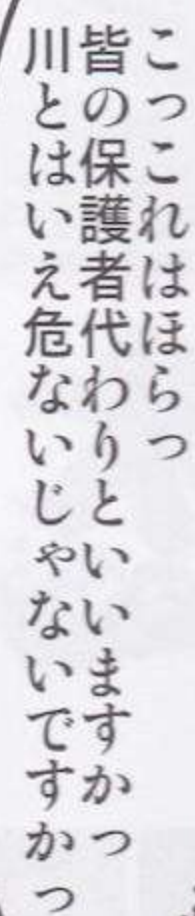 こっこれはほらっ
皆の保護者代わりといいますかっ
川とはいえ危ないじゃないですかっ